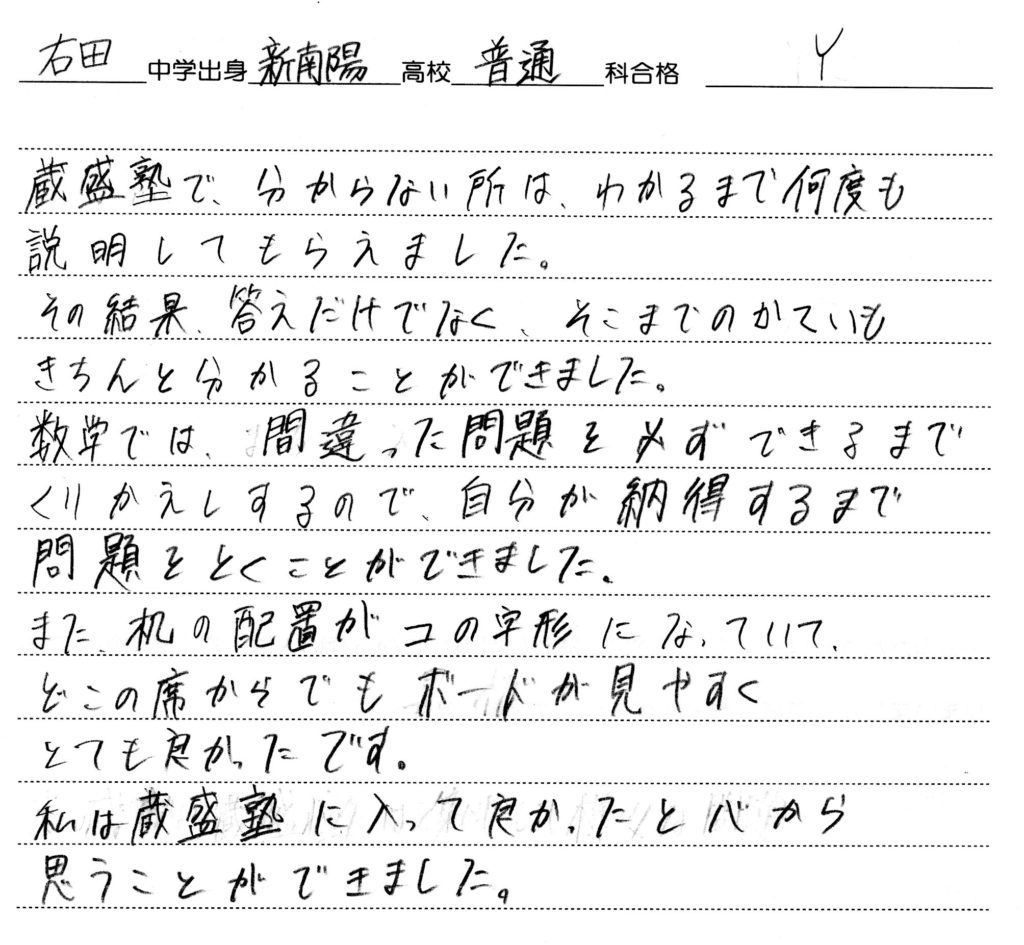 右田中学出身新南陽高校普通科合格 Y
蔵盛塾で、分からない所は、わかるまで何度も
説明してもらえました。
その結果、答えだけでなく、そこまでのかていも
きちんと分かることができました。
数学では、間違った問題を必ずできるまで
くりかえしするので、自分が納得するまで
問題をとくことができました。
また、机の配置がコの字形になっていて、
どこの席からでもボードが見やすく
とても良かったです。
私は蔵盛塾に入って良かったと心から
思うことができました。